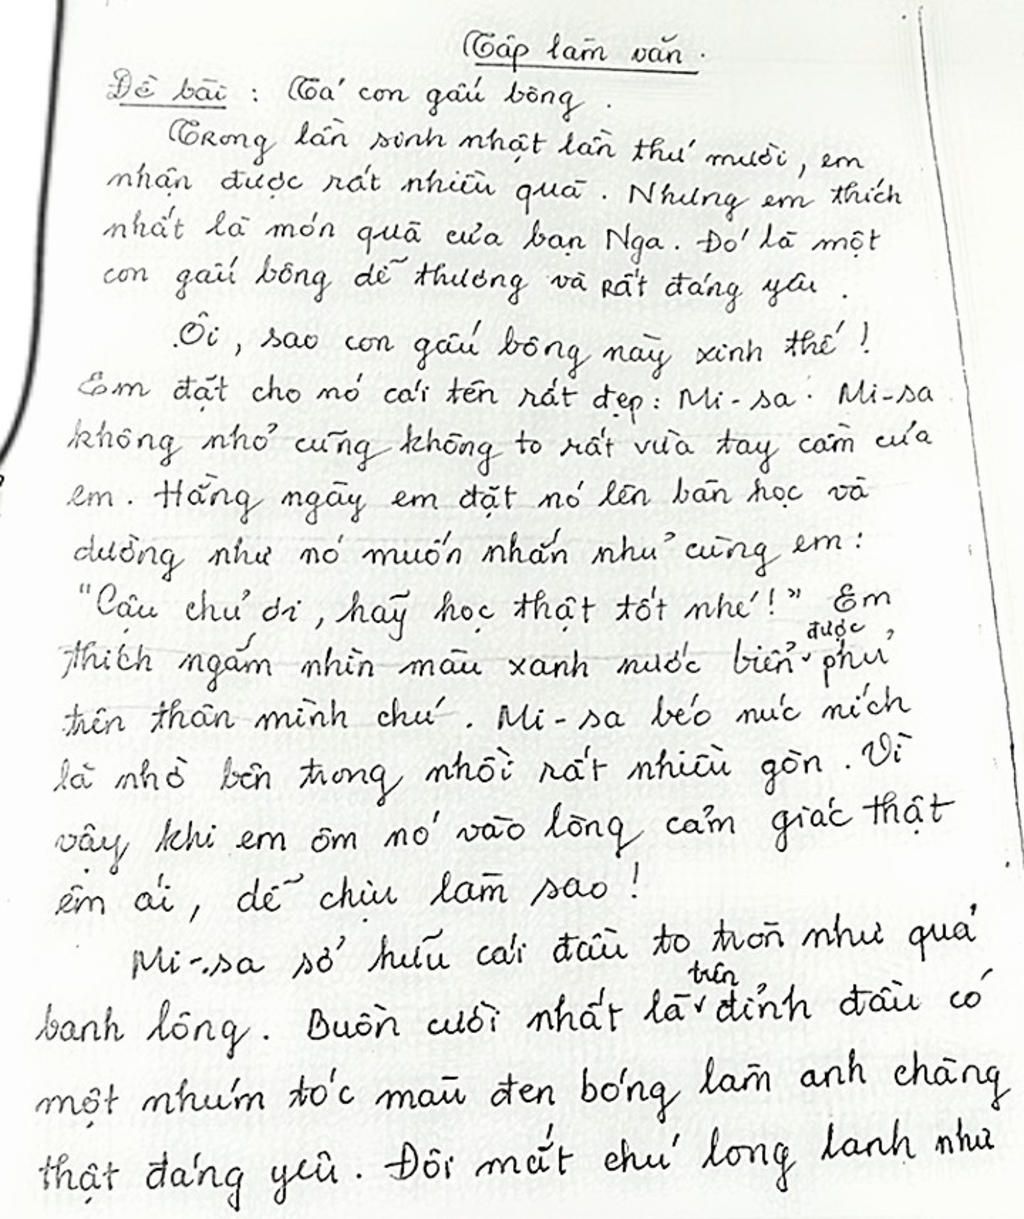 Tập làm văn.
Đề bài : Tả con gấu bông.
Trong lần sinh nhật lần thứ mười, em
nhận được rất nhiều quà. Nhưng em thích
nhất là món quà của bạn Nga. Đó là một
con gấu bông dễ thương và rất đáng yêu.
Ôi, sao con gấu bông này xinh thế!
Em đặt cho nó cái tên rất đẹp: Mi-sa. Mi-sa
không nhỏ cũng không to rất vừa tay cầm của
em. Hằng ngày em đặt nó lên bàn học và
dường như nó muốn nhắn nhủ cùng em:
"Cậu chủ ơi, hãy học thật tốt nhé!" Em
thích ngắm nhìn màu xanh nước biển được phủ
trên thân mình chú. Mi-sa béo núc ních
là nhờ bên trong nhồi rất nhiều gòn. Vì
vậy khi em ôm nó vào lòng cảm giác thật
êm ái, dễ chịu làm sao!
Mi-sa sở hữu cái đầu to tròn như quả
banh lông. Buồn cười nhất là trên đỉnh đầu có
một nhúm tóc màu đen bóng làm anh chàng
thật đáng yêu. Đôi mắt chú long lanh như